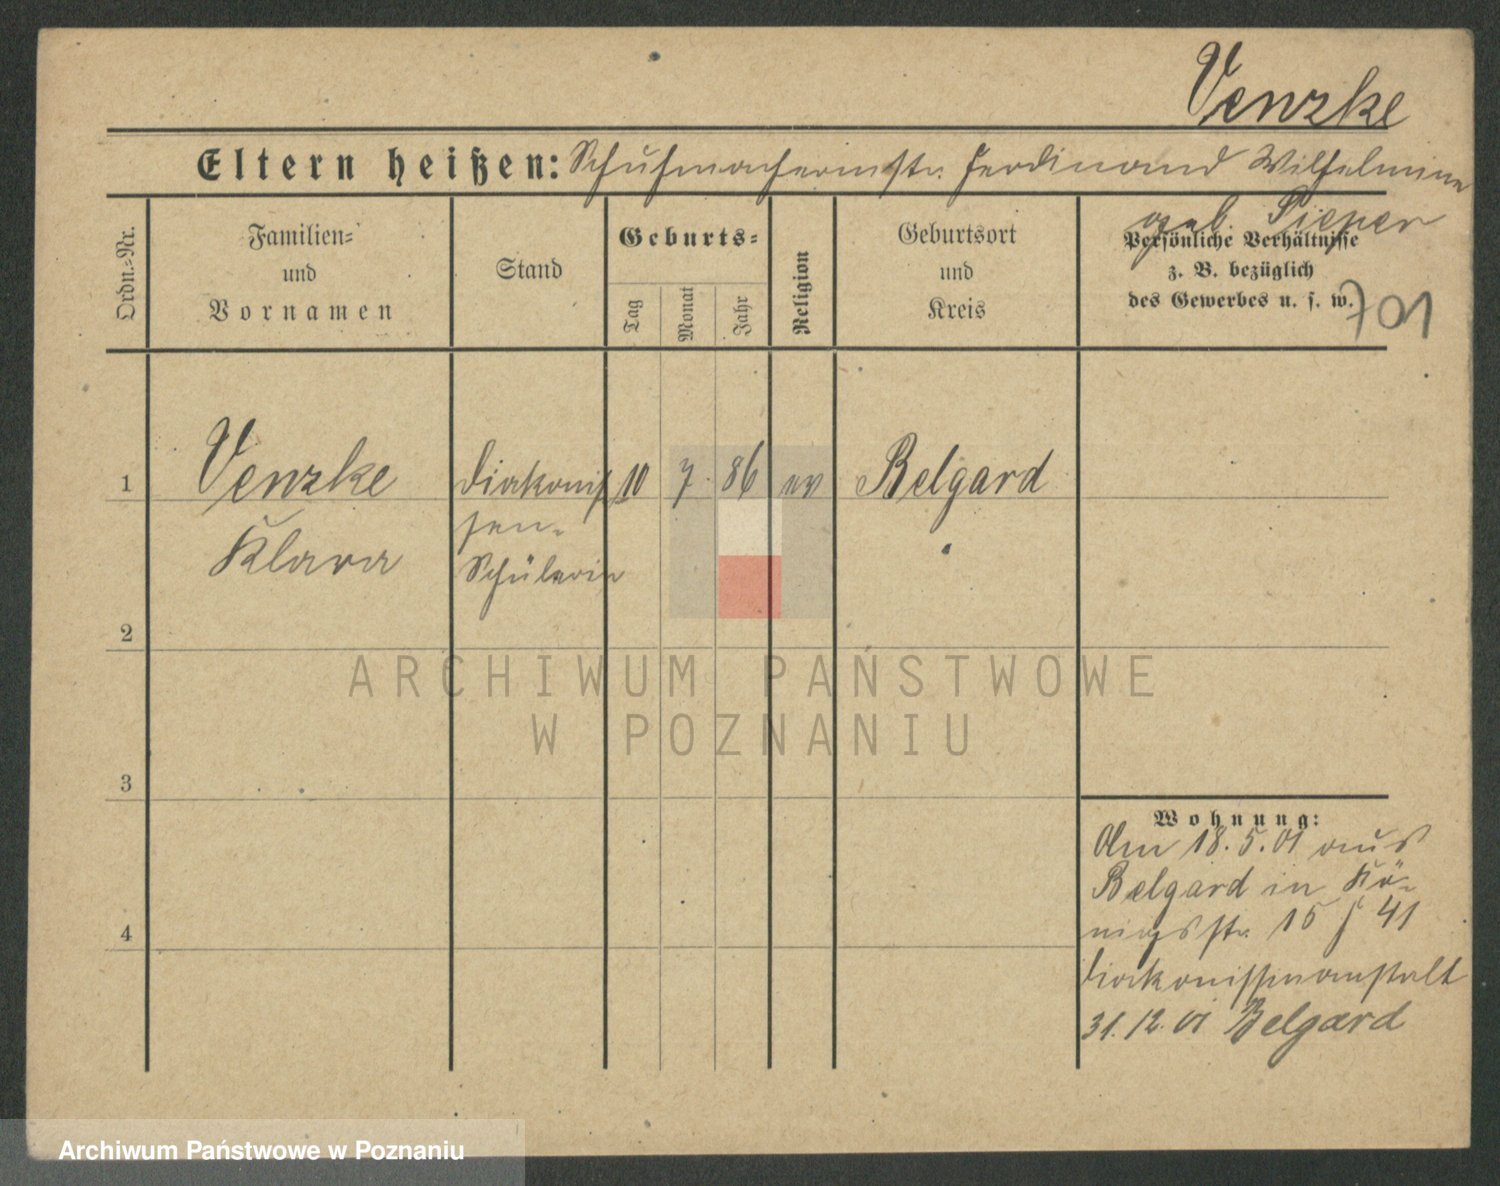 Venzke
Eltern heißen: Schuhmachermstr. Ferdinand Wilhelmine
geb. Pieper
Ordn.-Nr.
Familien-
und
Vornamen
Stand
Geburts-
Tag
Monat
Jahr
Religion
Geburtsort
und
Kreis
Persönliche Verhältnisse
z. B. bezüglich
des Gewerbes u. s. w.
701
1 Venzke Diakonis 10 7. 86 ev Belgard
Klara
sen-
Schülerin
2
3
4
Wohnung:
Am 18.5.01 aus
Belgard in Kö-
nigsstr. 15 41
Diakonissenanstalt
31.12.01 Belgard
ARCHIWUM PAŃSTWOWE
W POZNANIU
Archiwum Państwowe w Poznaniu